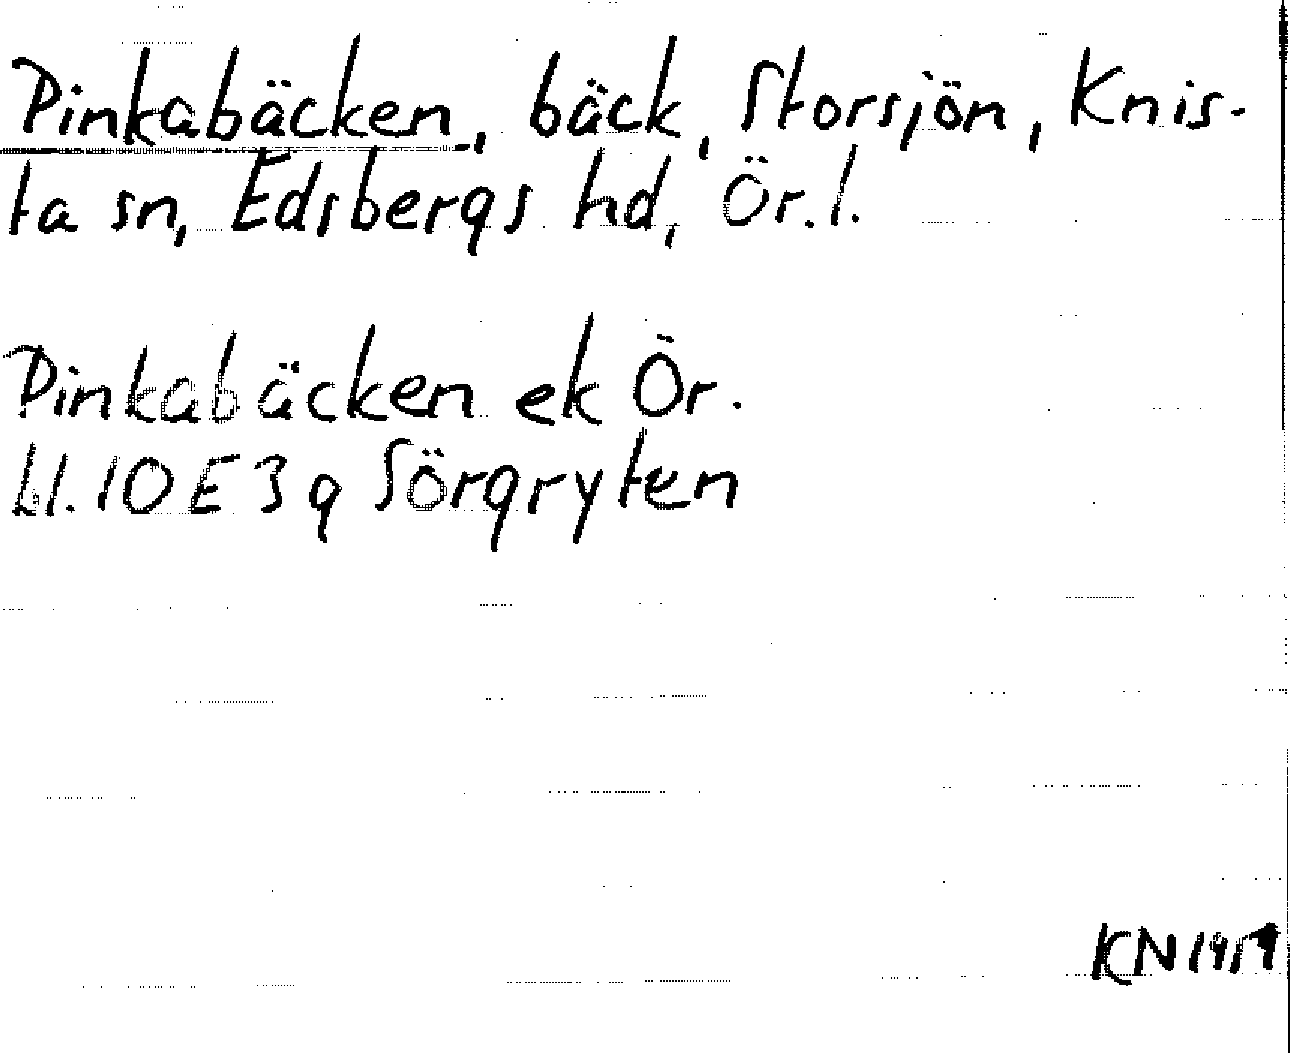 Pinkabäcken, bäck, Storsjön, Knis-
ta sn, Edsbergs hd, Ör. l.
Pinkabäcken ek Ör.
bl. 10E3g Sörgryten
KN